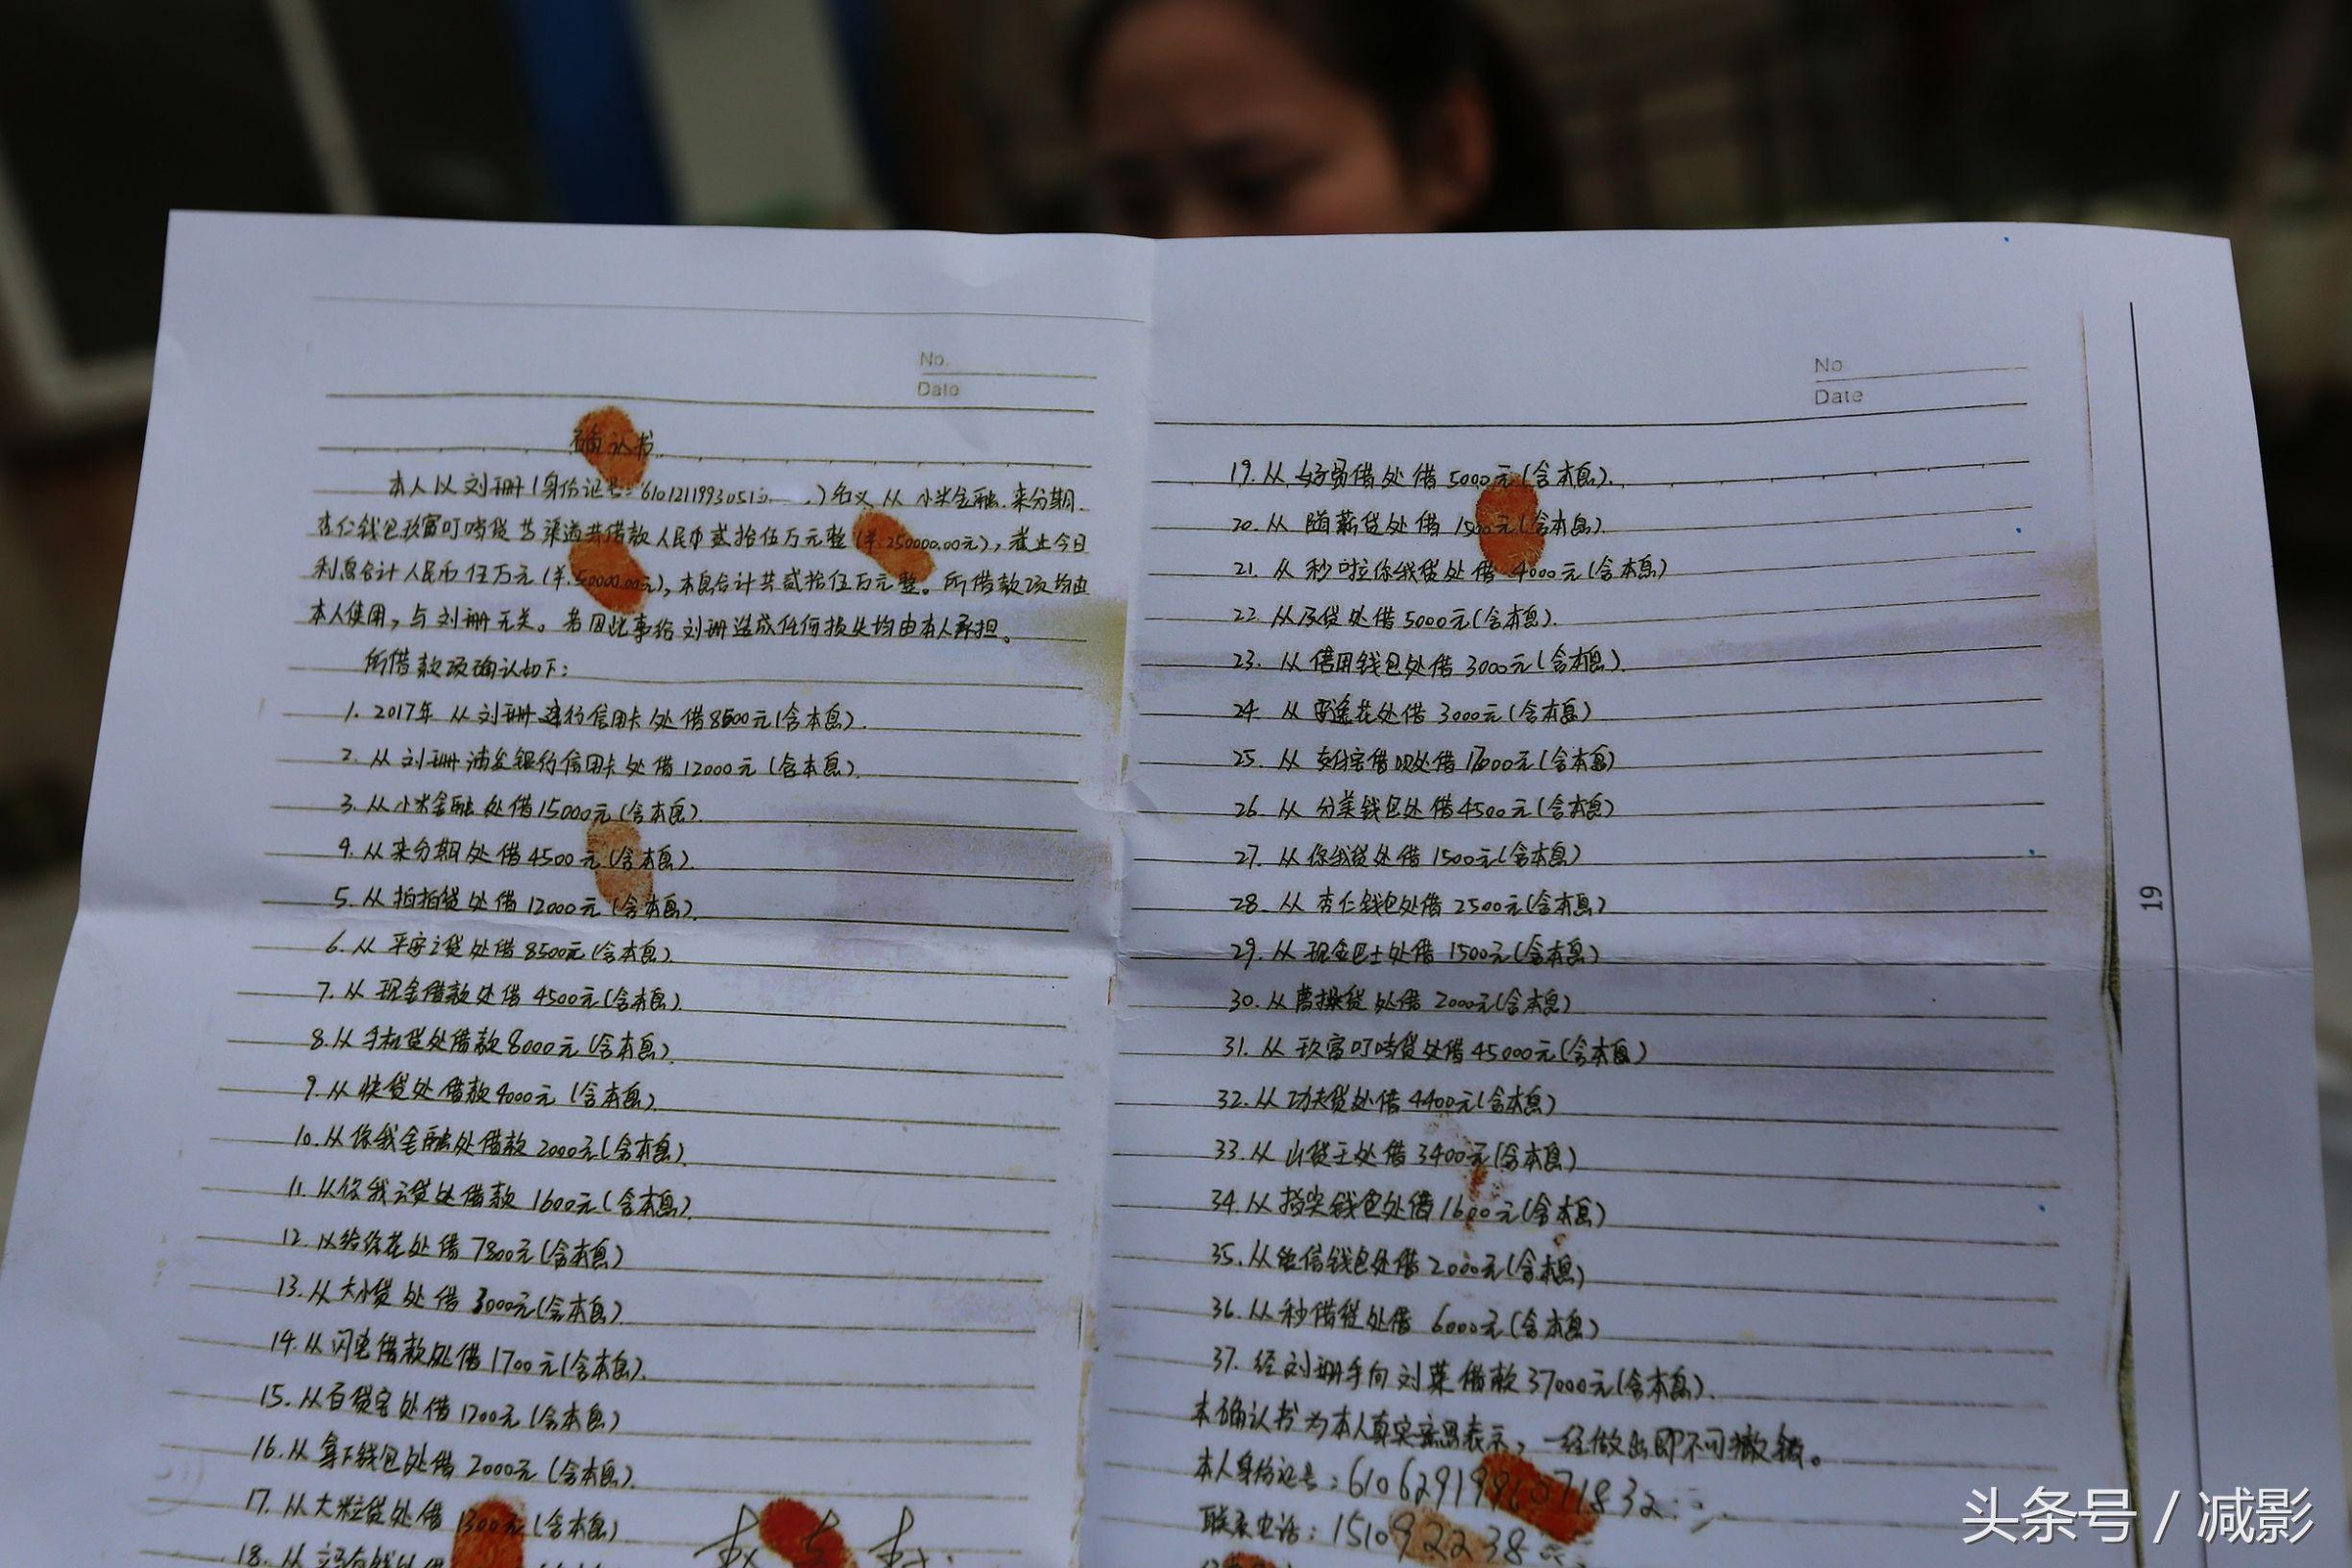 No.
Date
确认书
本人以刘珊(身份证号:61012119930513)名义从小米金融.来分期.
杏仁钱包玖富叮当贷等渠道共借款人民币贰拾伍万元整(¥.250000.00元),截止今日
利息合计人民币伍万元(¥.50000.00元),本息合计共贰拾伍万元整。所借款项均由
本人使用,与刘珊无关。若因此事给刘珊造成任何损失均由本人承担。
所借款项确认如下:
1. 2017年从刘珊建行信用卡处借8500元(含本息).
2. 从刘珊浦发银行信用卡处借12000元(含本息).
3. 从小米金融处借15000元(含本息).
4. 从来分期处借4500元(含本息).
5. 从拍拍贷处借12000元(含本息).
6. 从平安i贷处借8500元(含本息).
7. 从现金借款处借4500元(含本息).
8. 从手机贷处借款8000元(含本息).
9. 从快贷处借款4000元(含本息).
10. 从你我金融处借款2000元(含本息).
11. 从你我i贷处借款1600元(含本息).
12. 从给你花处借7800元(含本息)
13. 从大小贷处借3000元(含本息).
14. 从闪电借款处借1700元(含本息).
15. 从百贷宝处借1200元(含本息)
16. 从拿下钱包处借2000元(含本息).
17. 从大粒贷处借1300元(含本息)
18. 从
No
Date
19. 从好易借处借5000元(含本息).
20. 从随薪贷处借1500元(含本息).
21. 从秒啦你我贷处借4000元(含本息)
22. 从及贷处借5000元(含本息).
23. 从信用钱包处借3000元(含本息).
24. 从用途花处借3000元(含本息)
25. 从支付宝借呗处借17000元(含本息)
26. 从分美钱包处借4500元(含本息)
27. 从你我贷处借1500元(含本息)
28. 从杏仁钱包处借2500元(含本息)
29. 从现金巴士处借1500元(含本息)
30. 从曹操贷处借2000元(含本息)
31. 从玖富叮当贷处借45000元(含本息)
32. 从功夫贷处借4400元(含本息)
33. 从山贷王处借3400元(含本息)
34. 从指尖钱包处借1600元(含本息)
35. 从钱包处借2000元(含本息)
36. 从秒借贷处借6000元(含本息)
37. 经刘珊手向刘菜借款37000元(含本息).
本确认书为本人真实意思表示,一经做出即不可撤销。
本人身份证号:6106291996071832
联系电话:151092238
19
头条号 / 减影